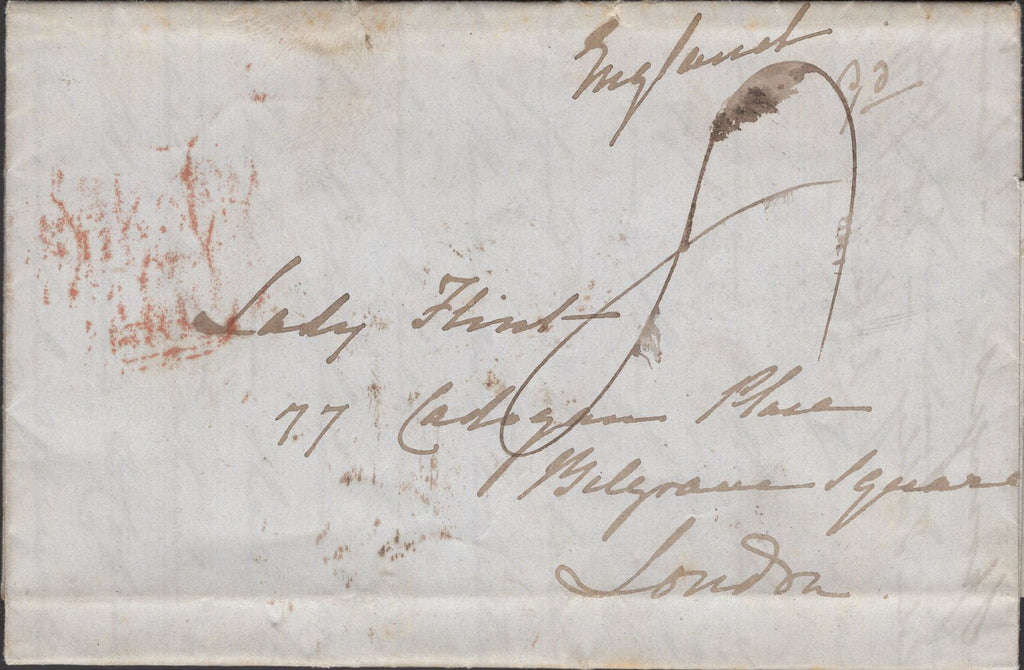 England
Lady Flint
77 Cadogan Place
Belgrave Square
London